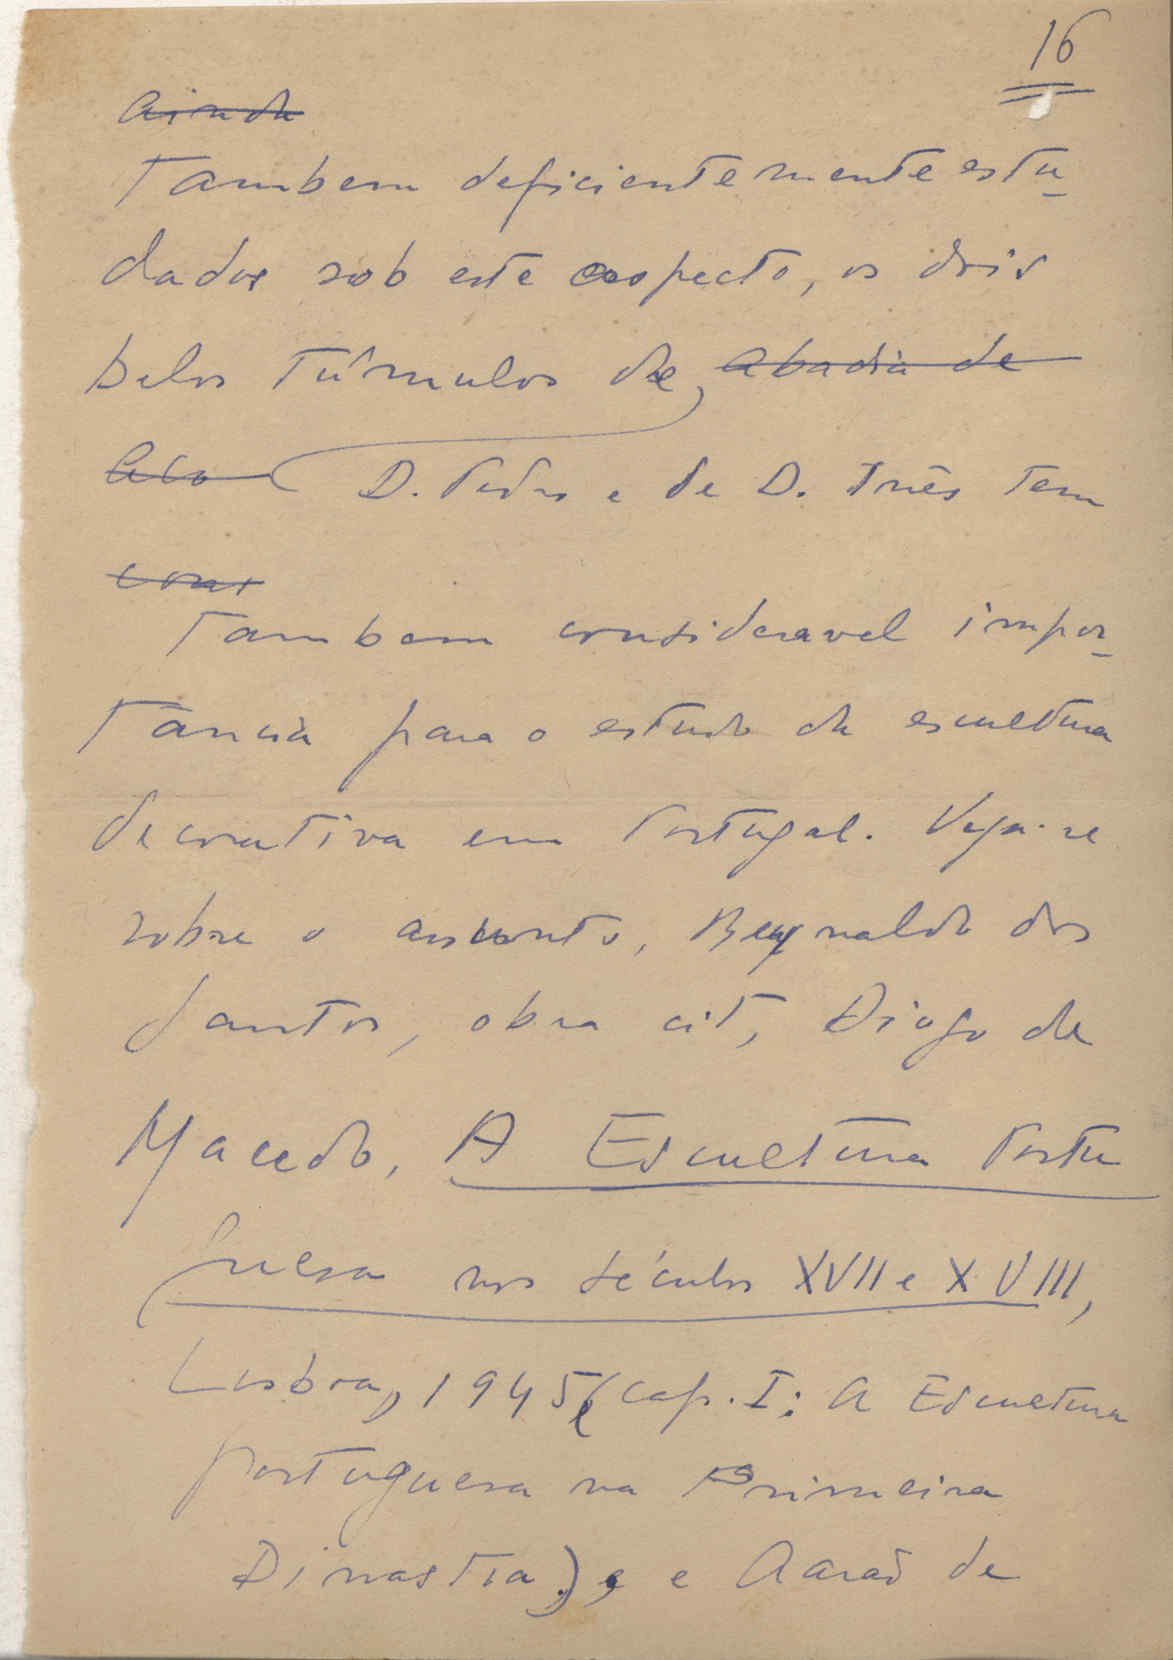 16
ainda
Tambem deficientemente estu-
dados sob este aspecto, os dois
belos túmulos de, abadia de
Alco D. Pedro e de D. Inês tem
cons
tambem consideravel impor-
tância para o estudo da escultura
decorativa em Portugal. Veja-se
sobre o assunto, Reynaldo dos
Santos, obra cit, Diogo de
Macedo, A Escultura Portu
guesa nos séculos XVII e XVIII,
Lisboa, 1945, (cap. I: A Escultura
portuguesa na Primeira
Dinastia), e Aarão de